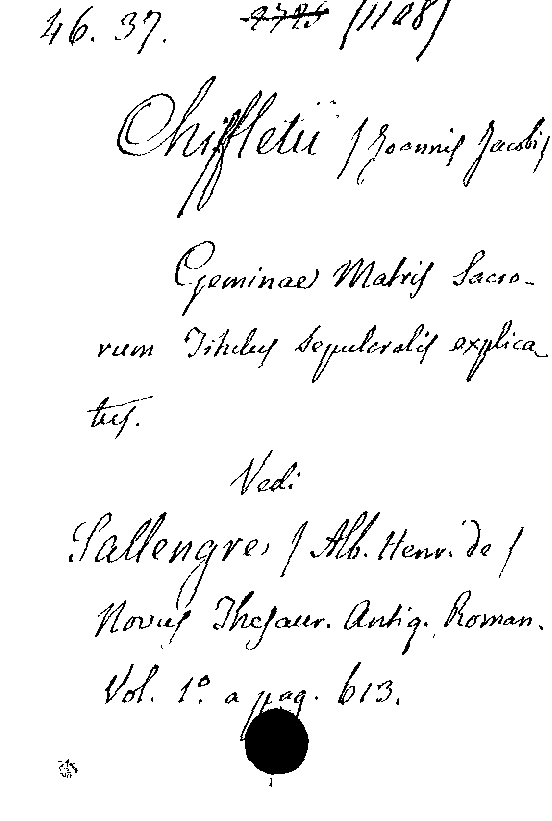 46. 37. 2725 (1108)
Chiffletii (Joannis Jacobi)
Geminae Matris Sacro-
rum Titulus Sepulcralis explica
tus.
Vedi
Sallengre, (Alb. Henr. de)
Novus Thesaur. Antiq. Roman.
Vol. 1º. a pag. 613.